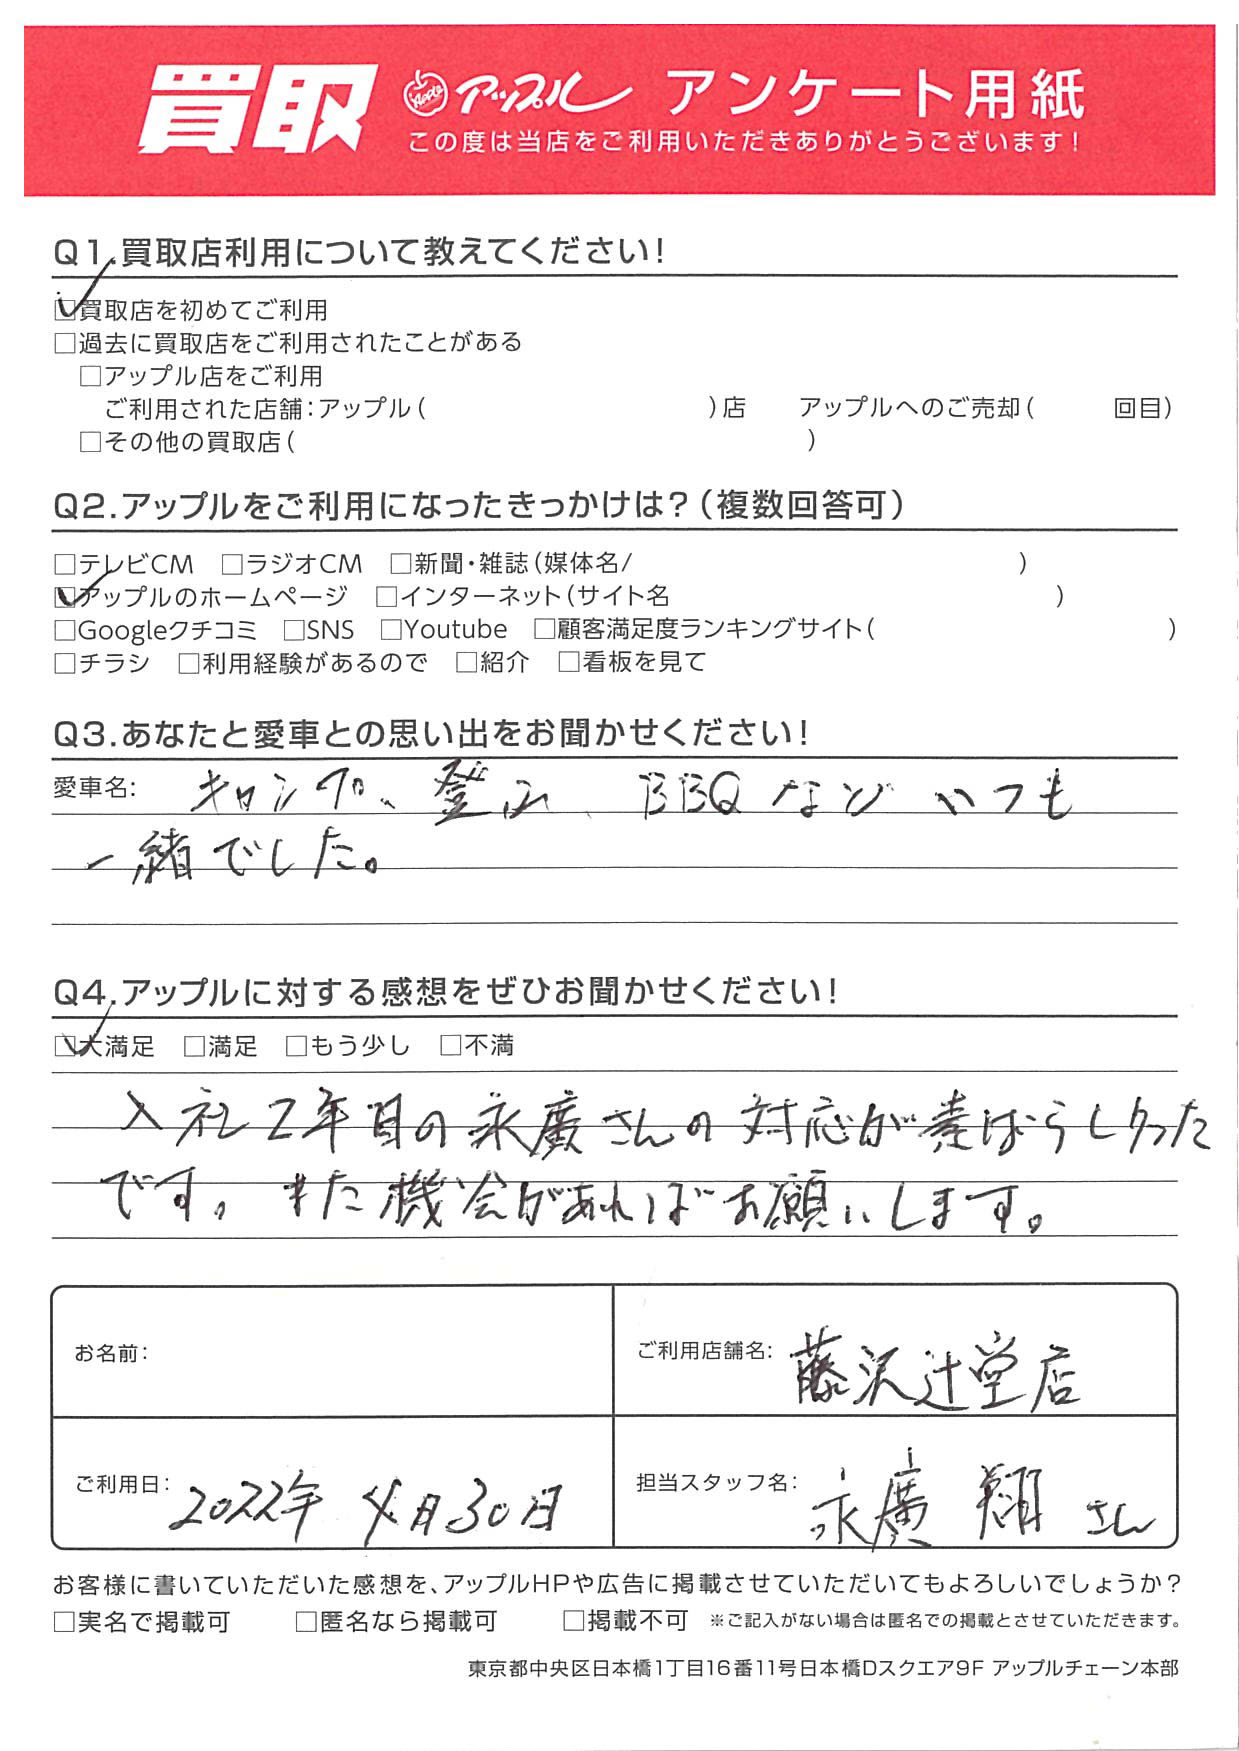 買取 Apple アップル アンケート用紙
この度は当店をご利用いただきありがとうございます!
Q1.買取店利用について教えてください!
☑買取店を初めてご利用
□過去に買取店をご利用されたことがある
□アップル店をご利用
ご利用された店舗:アップル( )店 アップルへのご売却( 回目)
□その他の買取店( )
Q2.アップルをご利用になったきっかけは?(複数回答可)
□テレビCM □ラジオCM □新聞・雑誌(媒体名/ )
☑アップルのホームページ □インターネット(サイト名 )
□Googleクチコミ □SNS □Youtube □顧客満足度ランキングサイト( )
□チラシ □利用経験があるので □紹介 □看板を見て
Q3.あなたと愛車との思い出をお聞かせください!
愛車名: キャンプ、登山、BBQなどいつも
一緒でした。
Q4.アップルに対する感想をぜひお聞かせください!
☑大満足 □満足 □もう少し □不満
入社2年目の永廣さんの対応が素ばらしかった
です。また機会があればお願いします。
お名前:
ご利用店舗名: 藤沢辻堂店
ご利用日: 2022年 4月30日
担当スタッフ名: 永廣 翔 さん
お客様に書いていただいた感想を、アップルHPや広告に掲載させていただいてもよろしいでしょうか?
□実名で掲載可 □匿名なら掲載可 □掲載不可 ※ご記入がない場合は匿名での掲載とさせていただきます。
東京都中央区日本橋1丁目16番11号日本橋Dスクエア9F アップルチェーン本部